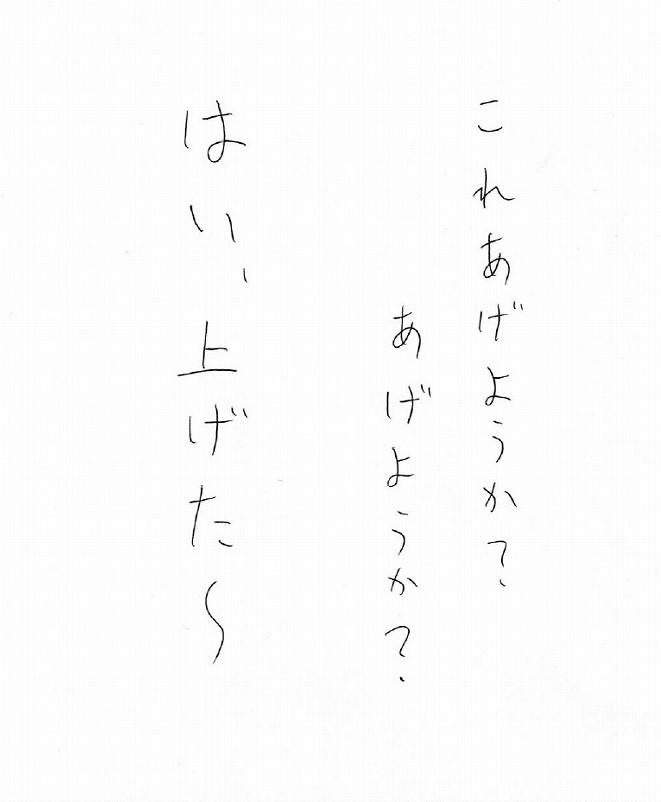 これあげようか?
あげようか?
はい、上げた〜